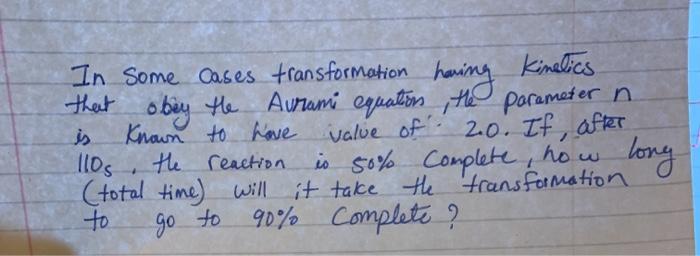 In Some cases transformation having kinetics
that obey the Avrami equation, the parameter n
is known to have value of 2.0. If, after
110s, the reaction is 50% Complete, how long
(total time) will it take the transformation
to go to 90% Complete?